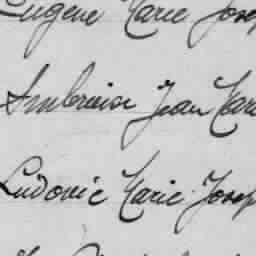 Eugène Marie Josep
Ambroise Jean Mari
Ludovic Marie Josep